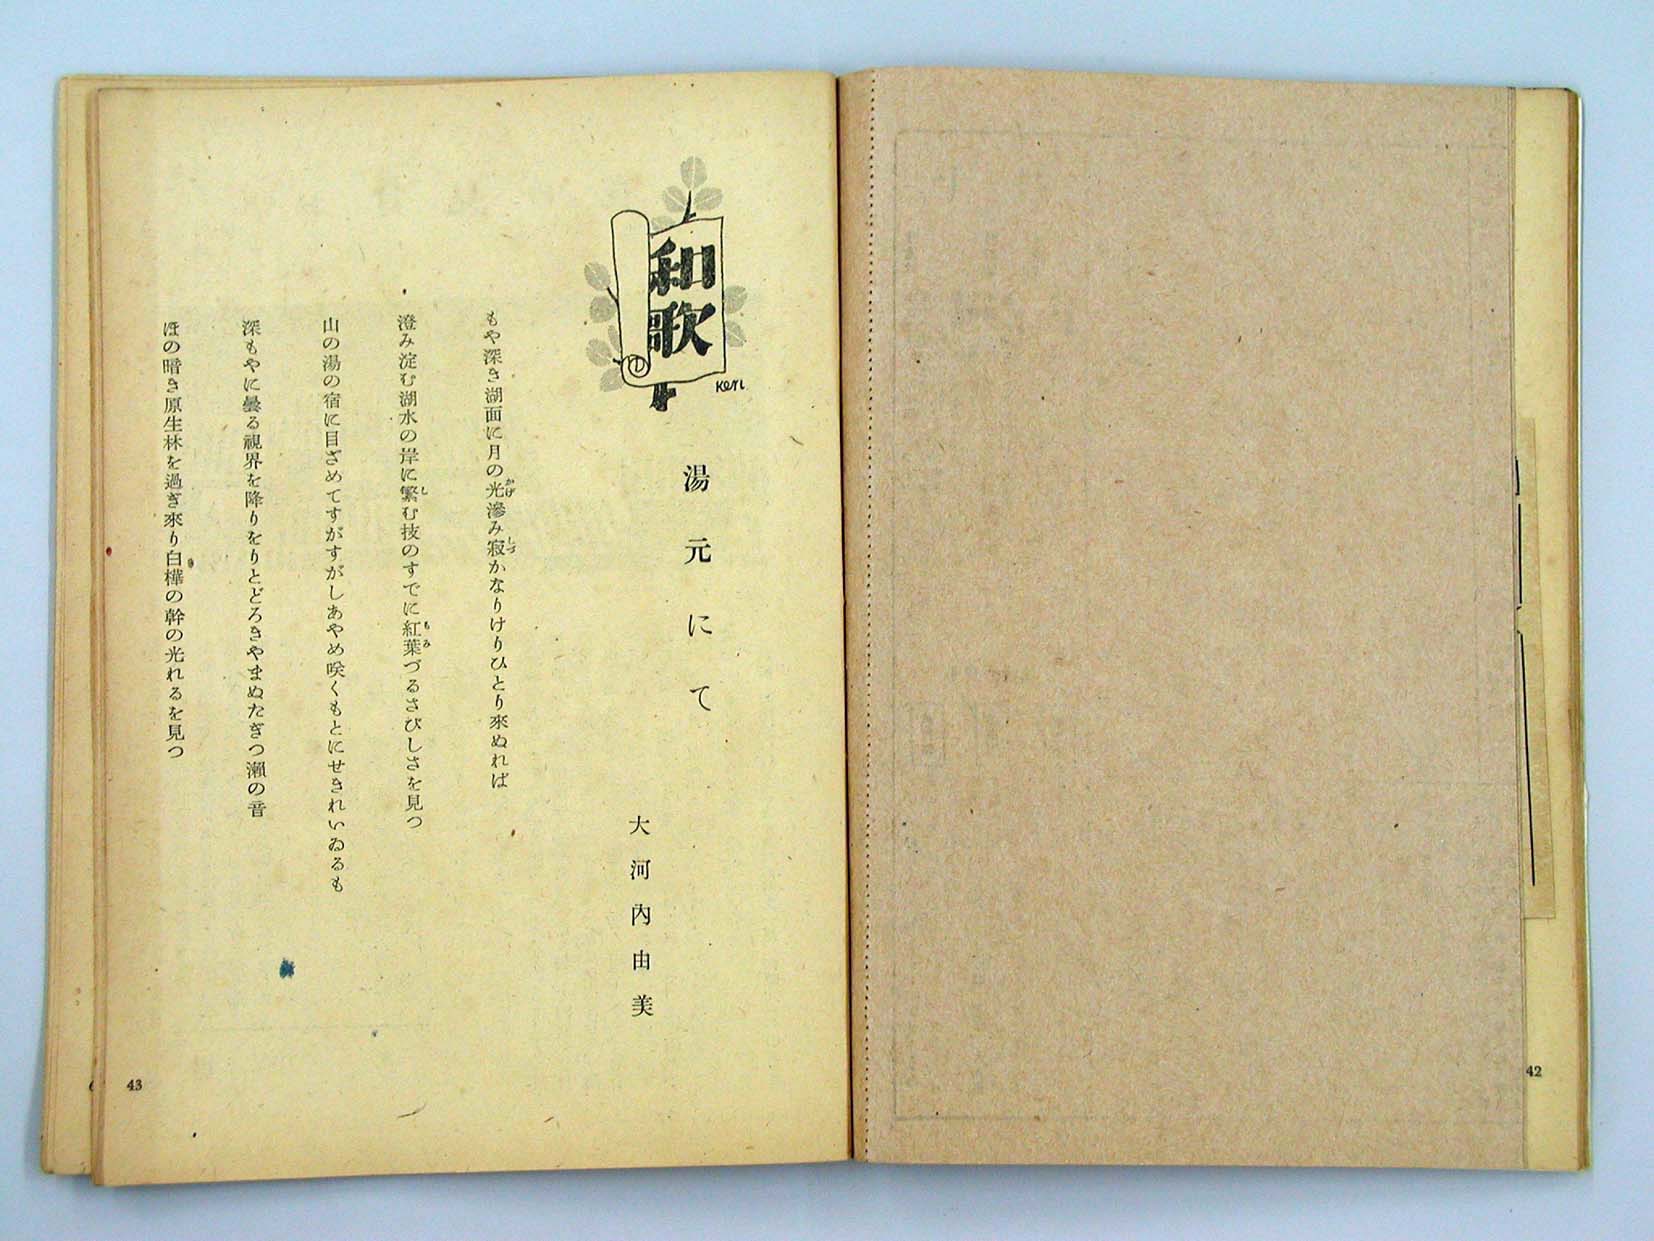 和歌
Ken
湯元にて
大河内由美
もや深き湖面に月の光滲み寂かなりけりひとり來ぬれば
かげ
しづ
澄み淀む湖水の岸に繁む技のすでに紅葉づるさびしさを見つ
し
もみ
山の湯の宿に目ざめてすがすがしあやめ咲くもとにせきれいゐるも
深もやに曇る視界を降りをりとどろきやまぬたぎつ瀬の音
ほの暗き原生林を過ぎ來り白樺の幹の光れるを見つ
43
42